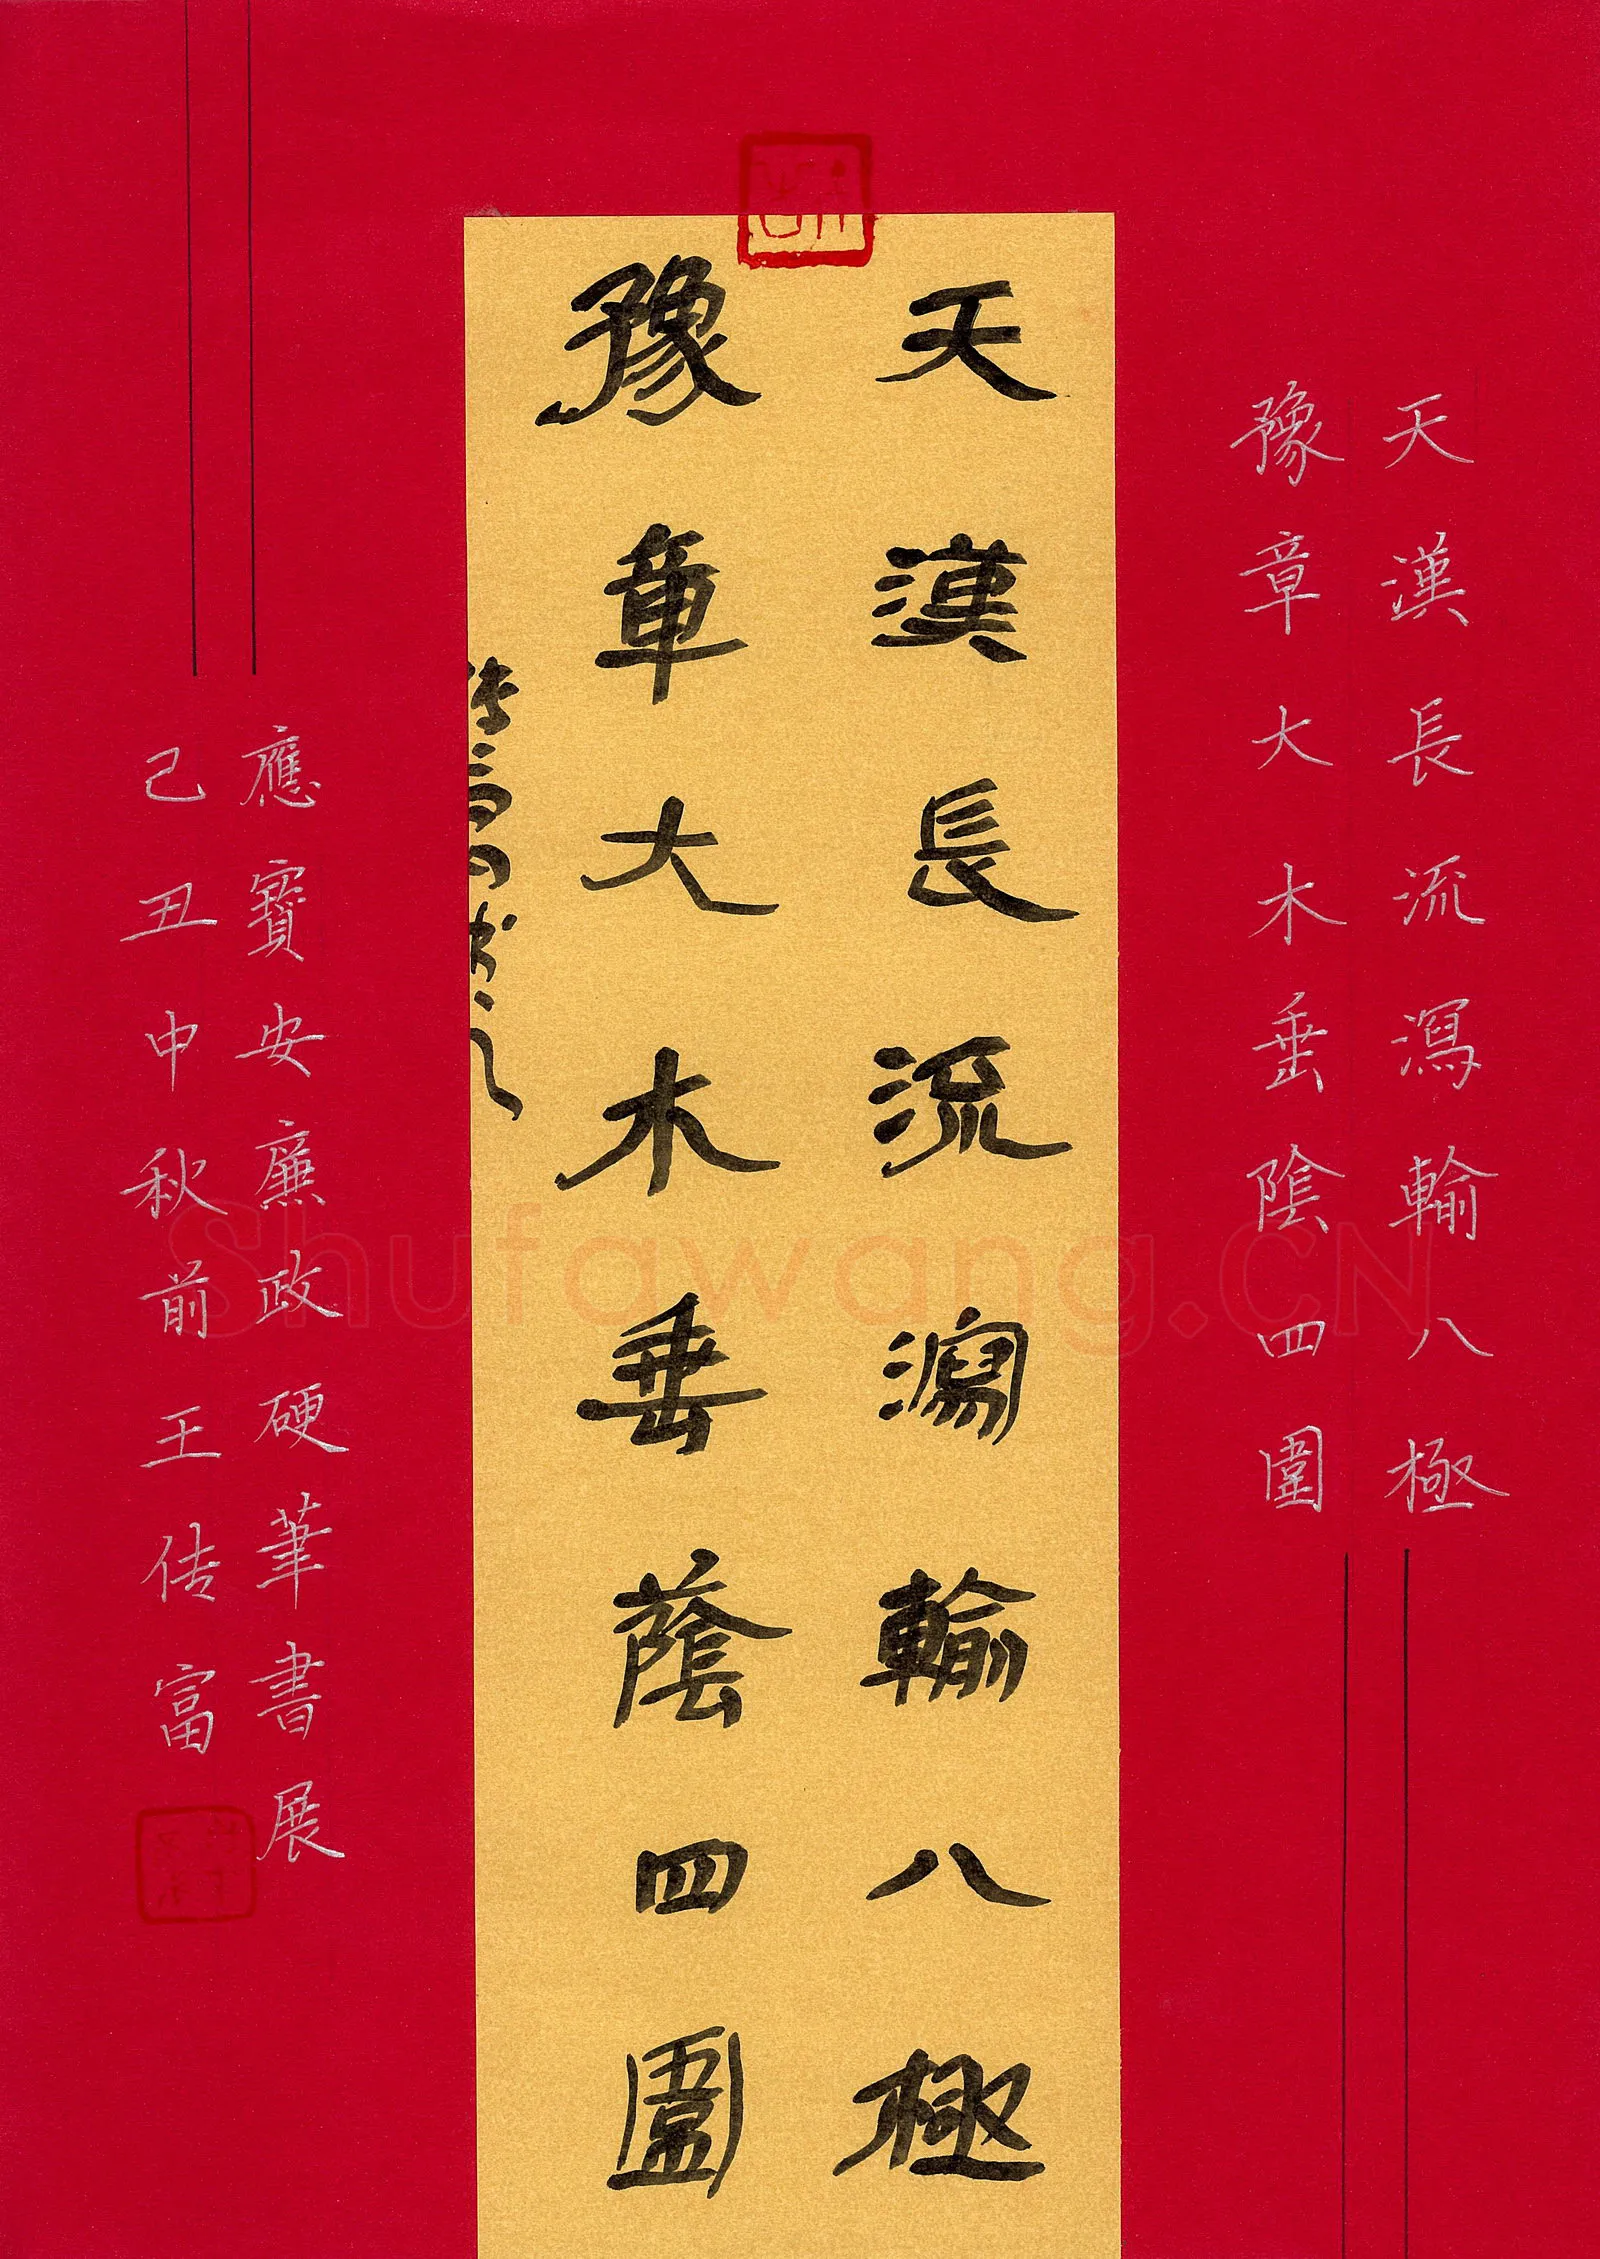 天漢長流瀉輸八極
豫章大木垂陰四圍
天漢長流瀉輸八極
豫章大木垂蔭四圍
應寶安廉政硬筆書展
己丑中秋前王传富
Shufawang.CN